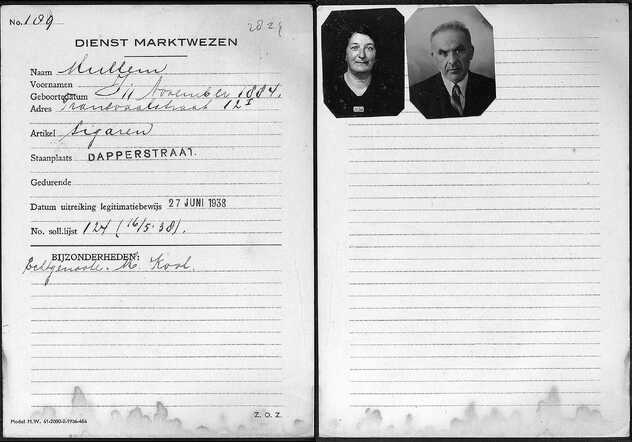 No. 189
2829
DIENST MARKTWEZEN
Naam Mullem
Voornamen
Geboortedatum 11 November 1884.
Adres Transvaalstraat 12 I
Artikel sigaren
Staanplaats DAPPERSTRAAT.
Gedurende
Datum uitreiking legitimatiebewijs 27 JUNI 1938
No. soll.lijst 124 (16/5-38).
BIJZONDERHEDEN:
Echtgenoote. M. Kool.
Model M.W.
Z. O. Z.